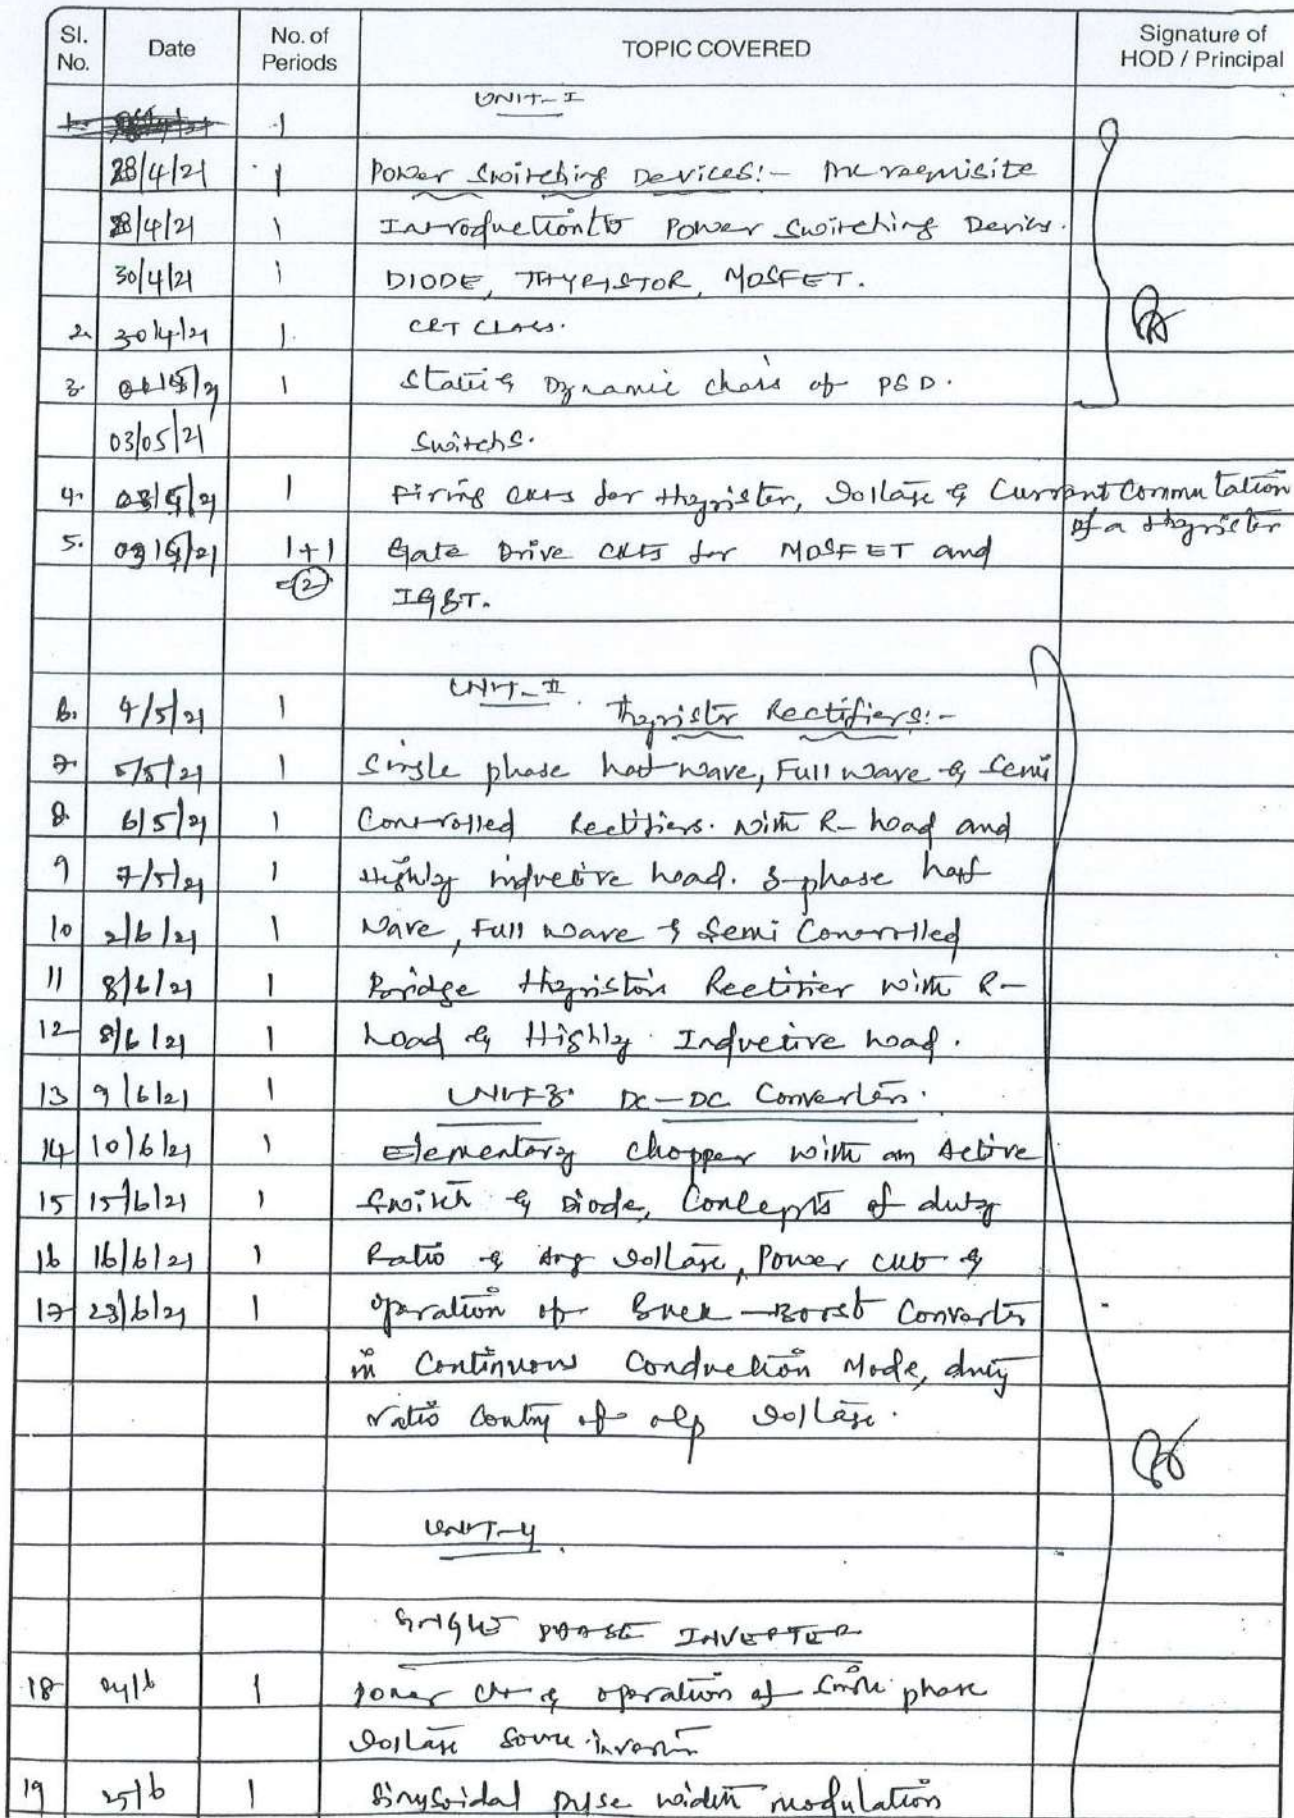 Sl. No. Date No. of Periods TOPIC COVERED Signature of HOD / Principal
UNIT-I
1
28/4/21 1 Power Switching Devices:- Prerequisite
28/4/21 1 Introduction to Power Switching Devices.
30/4/21 1 DIODE, THYRISTOR, MOSFET.
2. 30/4/21 1. CRT CLASS.
3. 1 Static & Dynamic chars of PSD.
03/05/21 Switchs.
4. 03/5/21 1 Firing CKTS for thyristor, Voltage & Current Commutation
of a thyristor
5. 03/5/21 1+1 Gate Drive CKTS for MOSFET and
=2 IGBT.
UNIT-II
6. 4/5/21 1 Thyristor Rectifiers:-
7. 5/5/21 1 Single phase half wave, Full wave & Semi
8. 6/5/21 1 Controlled Rectifiers. With R-Load and
9 7/5/21 1 Highly inductive load. 3-phase half
10 2/6/21 1 Wave, Full Wave & Semi Controlled
11 8/6/21 1 Bridge thyristor Rectifier with R-
12 8/6/21 1 Load & Highly Inductive Load.
13 9/6/21 1 UNIT-3. DC-DC Converters.
14 10/6/21 1 Elementary chopper with an Active
15 15/6/21 1 Switch & Diode, Concepts of duty
16 16/6/21 1 Ratio & Avg Voltage, Power ckt &
17 23/6/21 1 operation of Buck-Boost Converter
in Continuous Conduction Mode, duty
ratio of o/p Voltage.
UNIT-4.
SINGLE PHASE INVERTER
18 24/6 1 Power ckt & operation of Single phase
Voltage Source inverter
19 25/6 1 Sinusoidal pulse width modulation